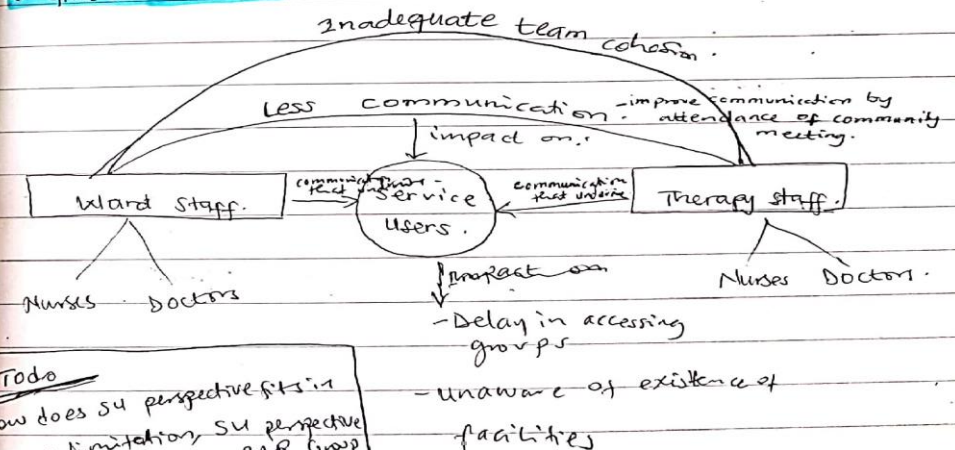 Inadequate team cohesion.
Less communication. - improve communication by
attendance of community
meeting.
impact on.
Ward Staff.
communication
that
Service
Users.
communication
that
Therapy staff.
Nurses Doctors
Nurses Doctors.
Impact on
- Delay in accessing
groups
- unaware of existence of
facilities
Todo
does SU perspective fits in
limitation, SU perspective
group